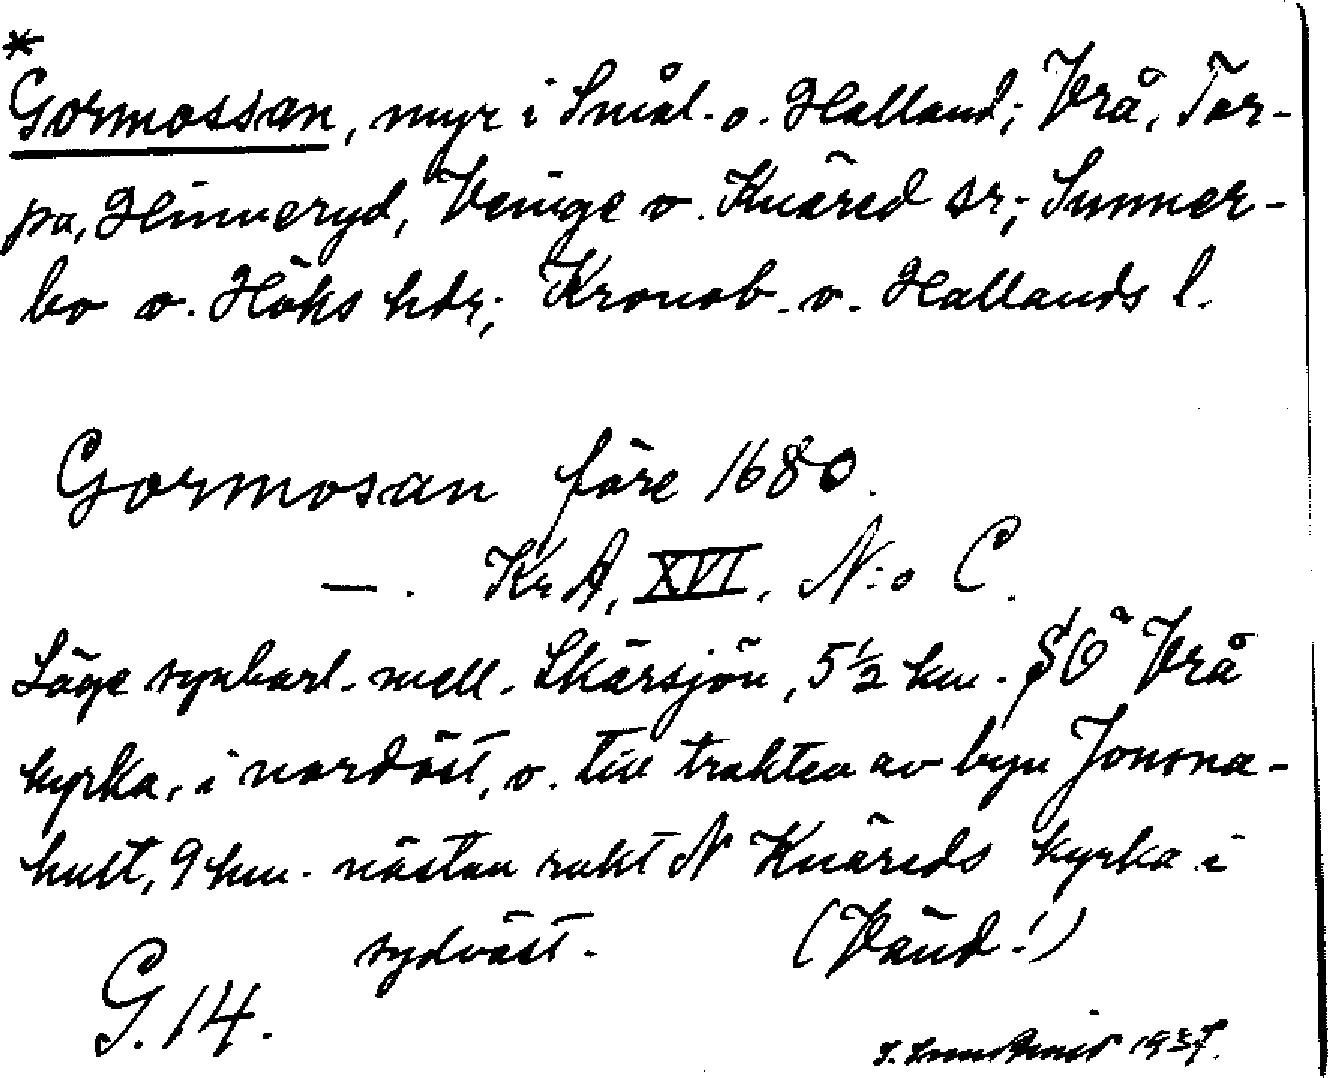 *
Gormossan, myr i Smål. o. Halland; Vrå, Tor-
pa, Hinneryd, Veinge o. Knäred sr; Sunner-
bo o. Höks hdr; Kronob. o. Hallands l.
Gormosan före 1680.
—. KrA, XVI, N:o C.
Läge synbarl. mell. Skärsjön, 5½ km. SÖ Vrå
kyrka, i nordöst, o. till trakten av byn Jonsna-
hult, 9 km. nästan rakt N Knäreds kyrka i
sydväst. (Vänd!)
G. 14.
1937.